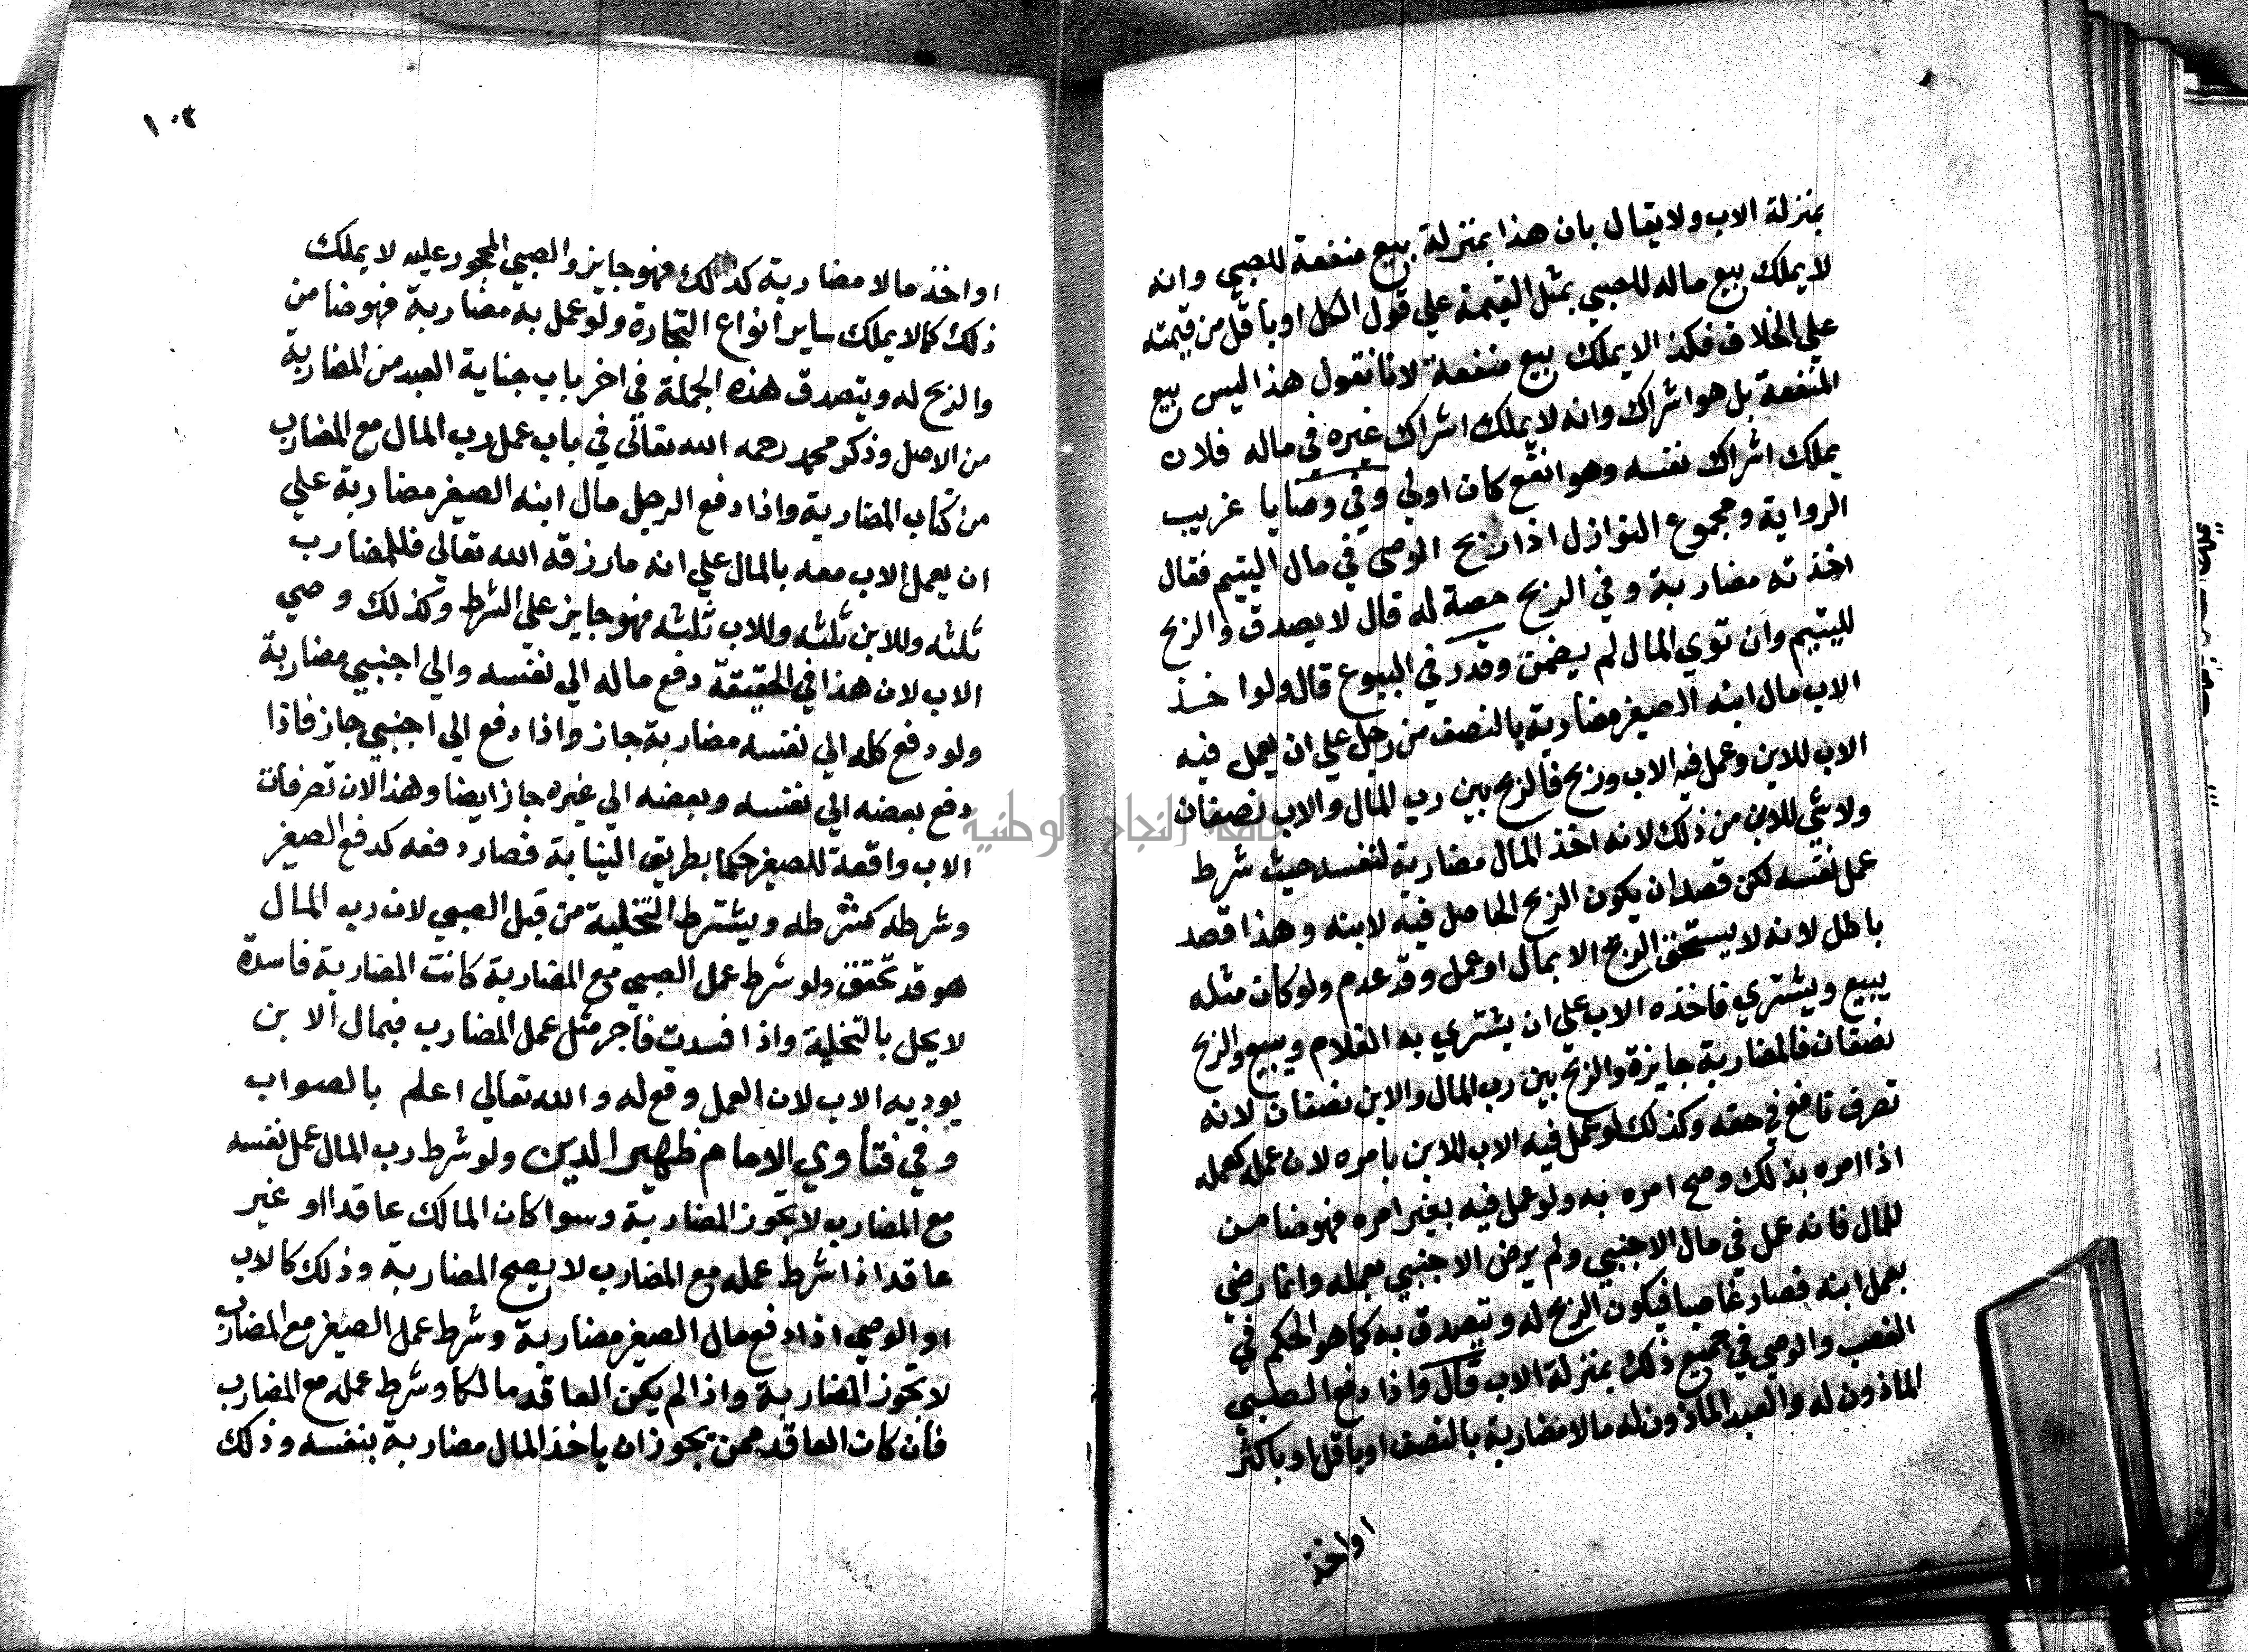 بمنزلة الاب ولا يقال بان هذا بمنزلة بيع منفعة للصبي وانه
لا يملك بيع ماله للصبي بمثل القيمة علي قول الكل او باقل من قيمته
علي الخلاف فكذا لا يملك بيع منفعة لانا نقول هذا ليس بيع
المنفعة بل هو اشراك وانه لا يملك اشراك غيره في ماله فلان
يملك اشراك نفسه وهو انفع كان اولي وفي وصايا غريب
الرواية ومجموع النوازل اذا ربح الوصي في مال اليتيم فقال
اخذته مضاربة وفي الربح حصة له قال لا يصدق والربح
لليتيم وان توي المال لم يضمن وقدر في البيوع قال ولو اخذ
الاب مال ابنه الصغير مضاربة بالنصف من رجل علي ان يعمل فيه
الاب للابن وعمل فيه الاب وربح فالربح بين رب المال والاب نصفان
ولا شي للابن من ذلك لانه اخذ المال مضاربة لنفسه حيث شرط
عمل نفسه لكن قصد ان يكون الربح الحاصل فيه لابنه وهذا قصد
باطل لانه لا يستحق الربح الا بمال او عمل وقد عدم ولو كان مثله
يبيع ويشتري فاخذه الاب علي ان يشتري به الغلام ويبيع والربح
نصفان فالمضاربة جايزة والربح بين رب المال والابن نصفان لانه
تصرف نافع في حقه وكذلك لو عمل فيه الاب للابن بامره لان عمله كعمله
اذا امره بذلك وصح امره به ولو عمل فيه بغير امره فهو ضامن
للمال فانه عمل في مال الاجنبي ولم يرض الاجنبي بعمله وانما رضي
بعمل ابنه فصار غاصبا فيكون الربح له ويتصدق به كما هو الحكم في
الغصب والوصي في جميع ذلك بمنزلة الاب قال واذا دفع الصبي
الماذون له والعبد الماذون له مالا مضاربة بالنصف او باقل او باكثر
او اخذ
١٠٢
او اخذ مالا مضاربة كذلك فهو جايز والصبي المحجور عليه لا يملك
ذلك كما لا يملك ساير انواع التجارة ولو عمل به مضاربة فهو ضامن
والربح له ويتصدق هذه الجملة في اخر باب جناية العبد من المضاربة
من الاصل وذكر محمد رحمه الله تعالي في باب عمل رب المال مع المضارب
من كتاب المضاربة واذا دفع الرجل مال ابنه الصغير مضاربة علي
ان يعمل الاب معه بالمال علي انه ما رزقه الله تعالي فللمضارب
ثلثه وللابن ثلثه وللاب ثلثه فهو جايز علي الشرط وكذلك وصي
الاب لان هذا في الحقيقة دفع ماله الي نفسه والي اجنبي مضاربة
ولو دفع كله الي نفسه مضاربة جاز واذا دفع الي اجنبي جاز فاذا
دفع بعضه الي نفسه وبعضه الي غيره جاز ايضا وهذا لان تصرفات
الاب واقعة للصغير حكما بطريق النيابة فصار دفعه كدفع الصغير
وشرطه كشرطه ويشترط التخلية من قبل الصبي لان رب المال
هو قد تحقق ولو شرط عمل الصبي مع المضاربة كانت المضاربة فاسدة
لا يحل بالتخلية واذا فسدت فاجر مثل عمل المضارب فبمال الابن
يوديه الاب لان العمل وقع له والله تعالي اعلم بالصواب
وفي فتاوي الامام ظهير الدين ولو شرط رب المال عمل نفسه
مع المضارب لا تجوز المضاربة وسوا كان المالك عاقدا او غير
عاقد اذا شرط عمله مع المضارب لا يصح المضاربة وذلك كالاب
او الوصي اذا دفع مال الصغير مضاربة وشرط عمل الصغير مع المضارب
لا تجوز المضاربة واذا لم يكن العاقد مالكا وشرط عمله مع المضارب
فان كان العاقد ممن يجوز ان ياخذ المال مضاربة بنفسه وذلك
جامعة النجاح الوطنية